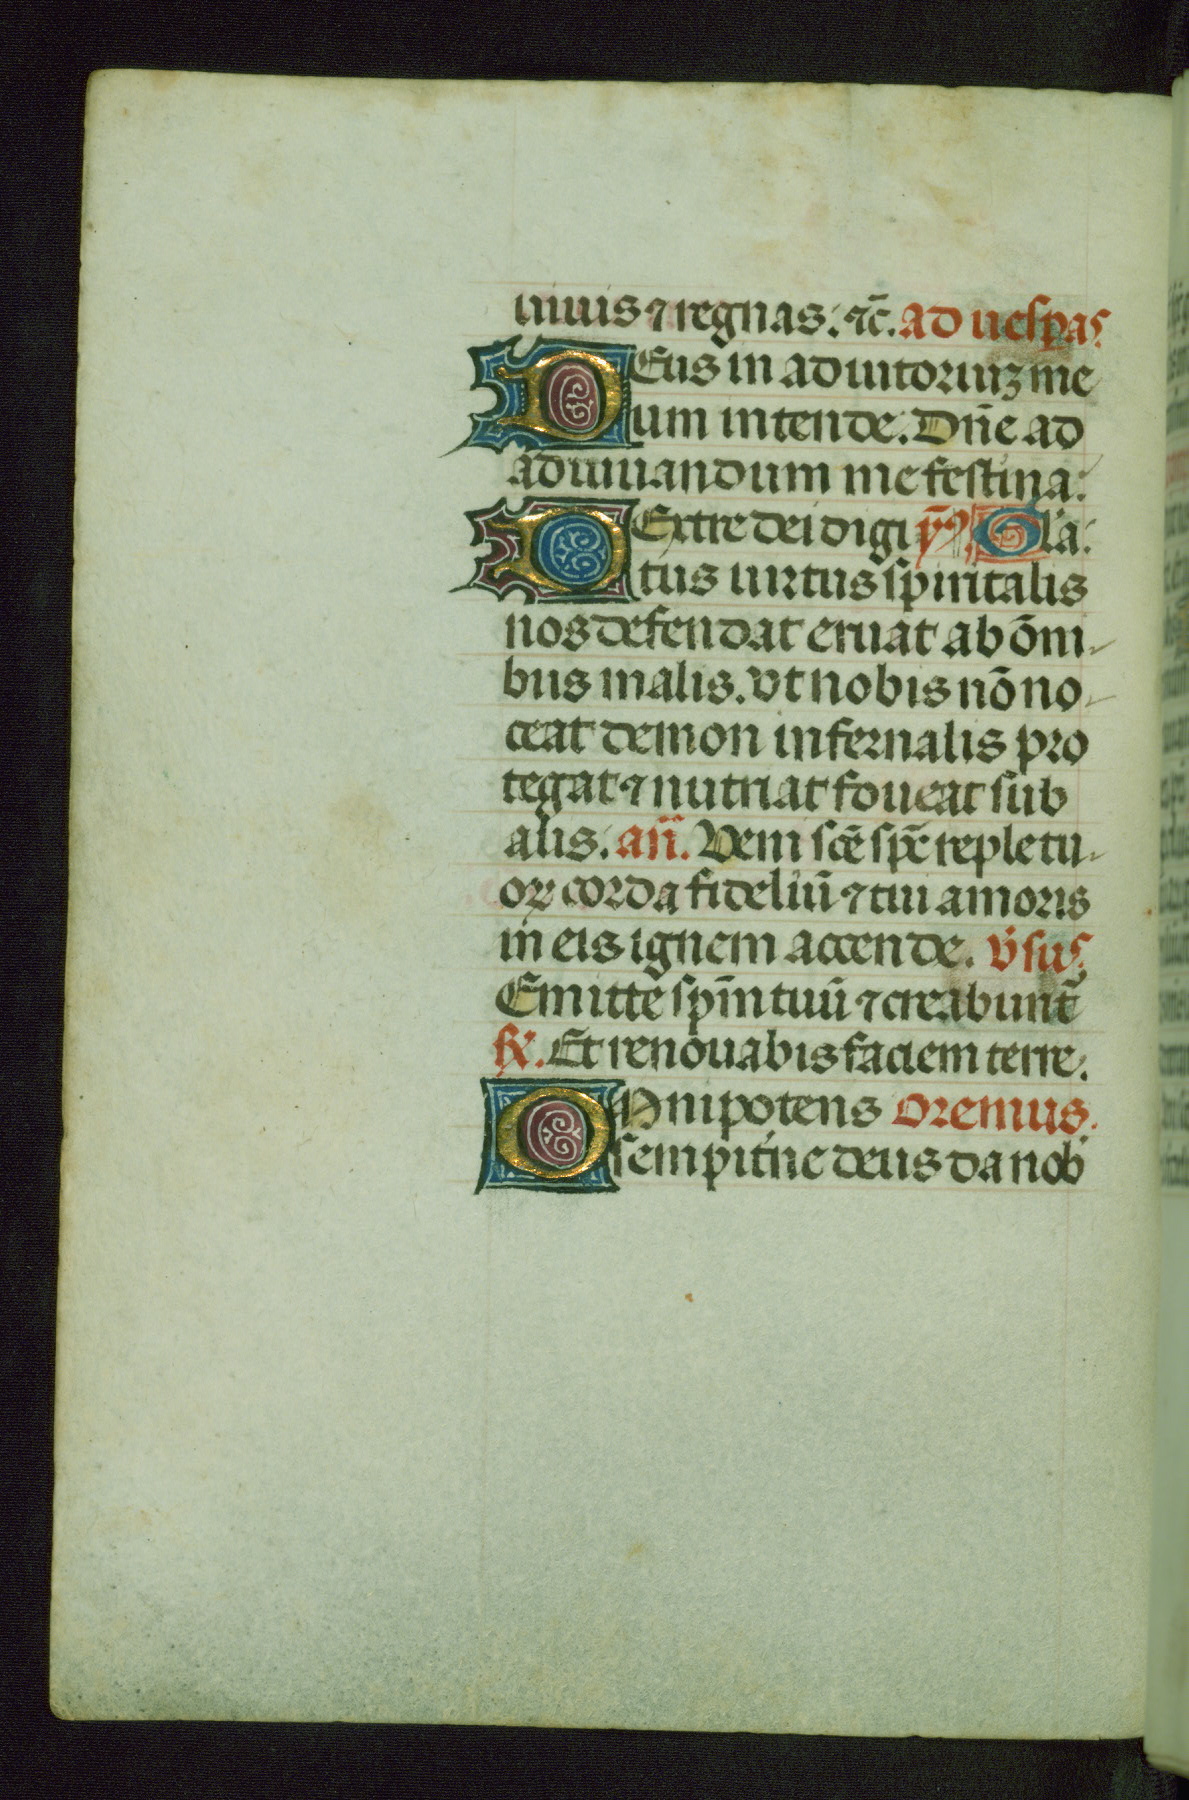 uiuis ⁊ regnas. ⁊c̄. ad uesp̱as.
Deus in adiutoriuꝫ me
um intende. Dn̄e ad
adiuuandum me festina.
Dextre dei digi yꝰ. Ola
tus uirtus spiritalis
nos defendat eruat ab om̄i-
bus malis. vt nobis nō no-
ceat demon infernalis pro
tegat ⁊ nutriat foueat sub
alis. an̄. Veni sc̄e sp̄c reple tu-
oꝝ corda fideliū ⁊ tui amoris
in eis ignem accende. v̓sus.
Emitte sp̄m tuū ⁊ creabunt̄
℟. Et renouabis faciem terre.
Omnipotens oremus.
sempit̓ne deus da nob̓